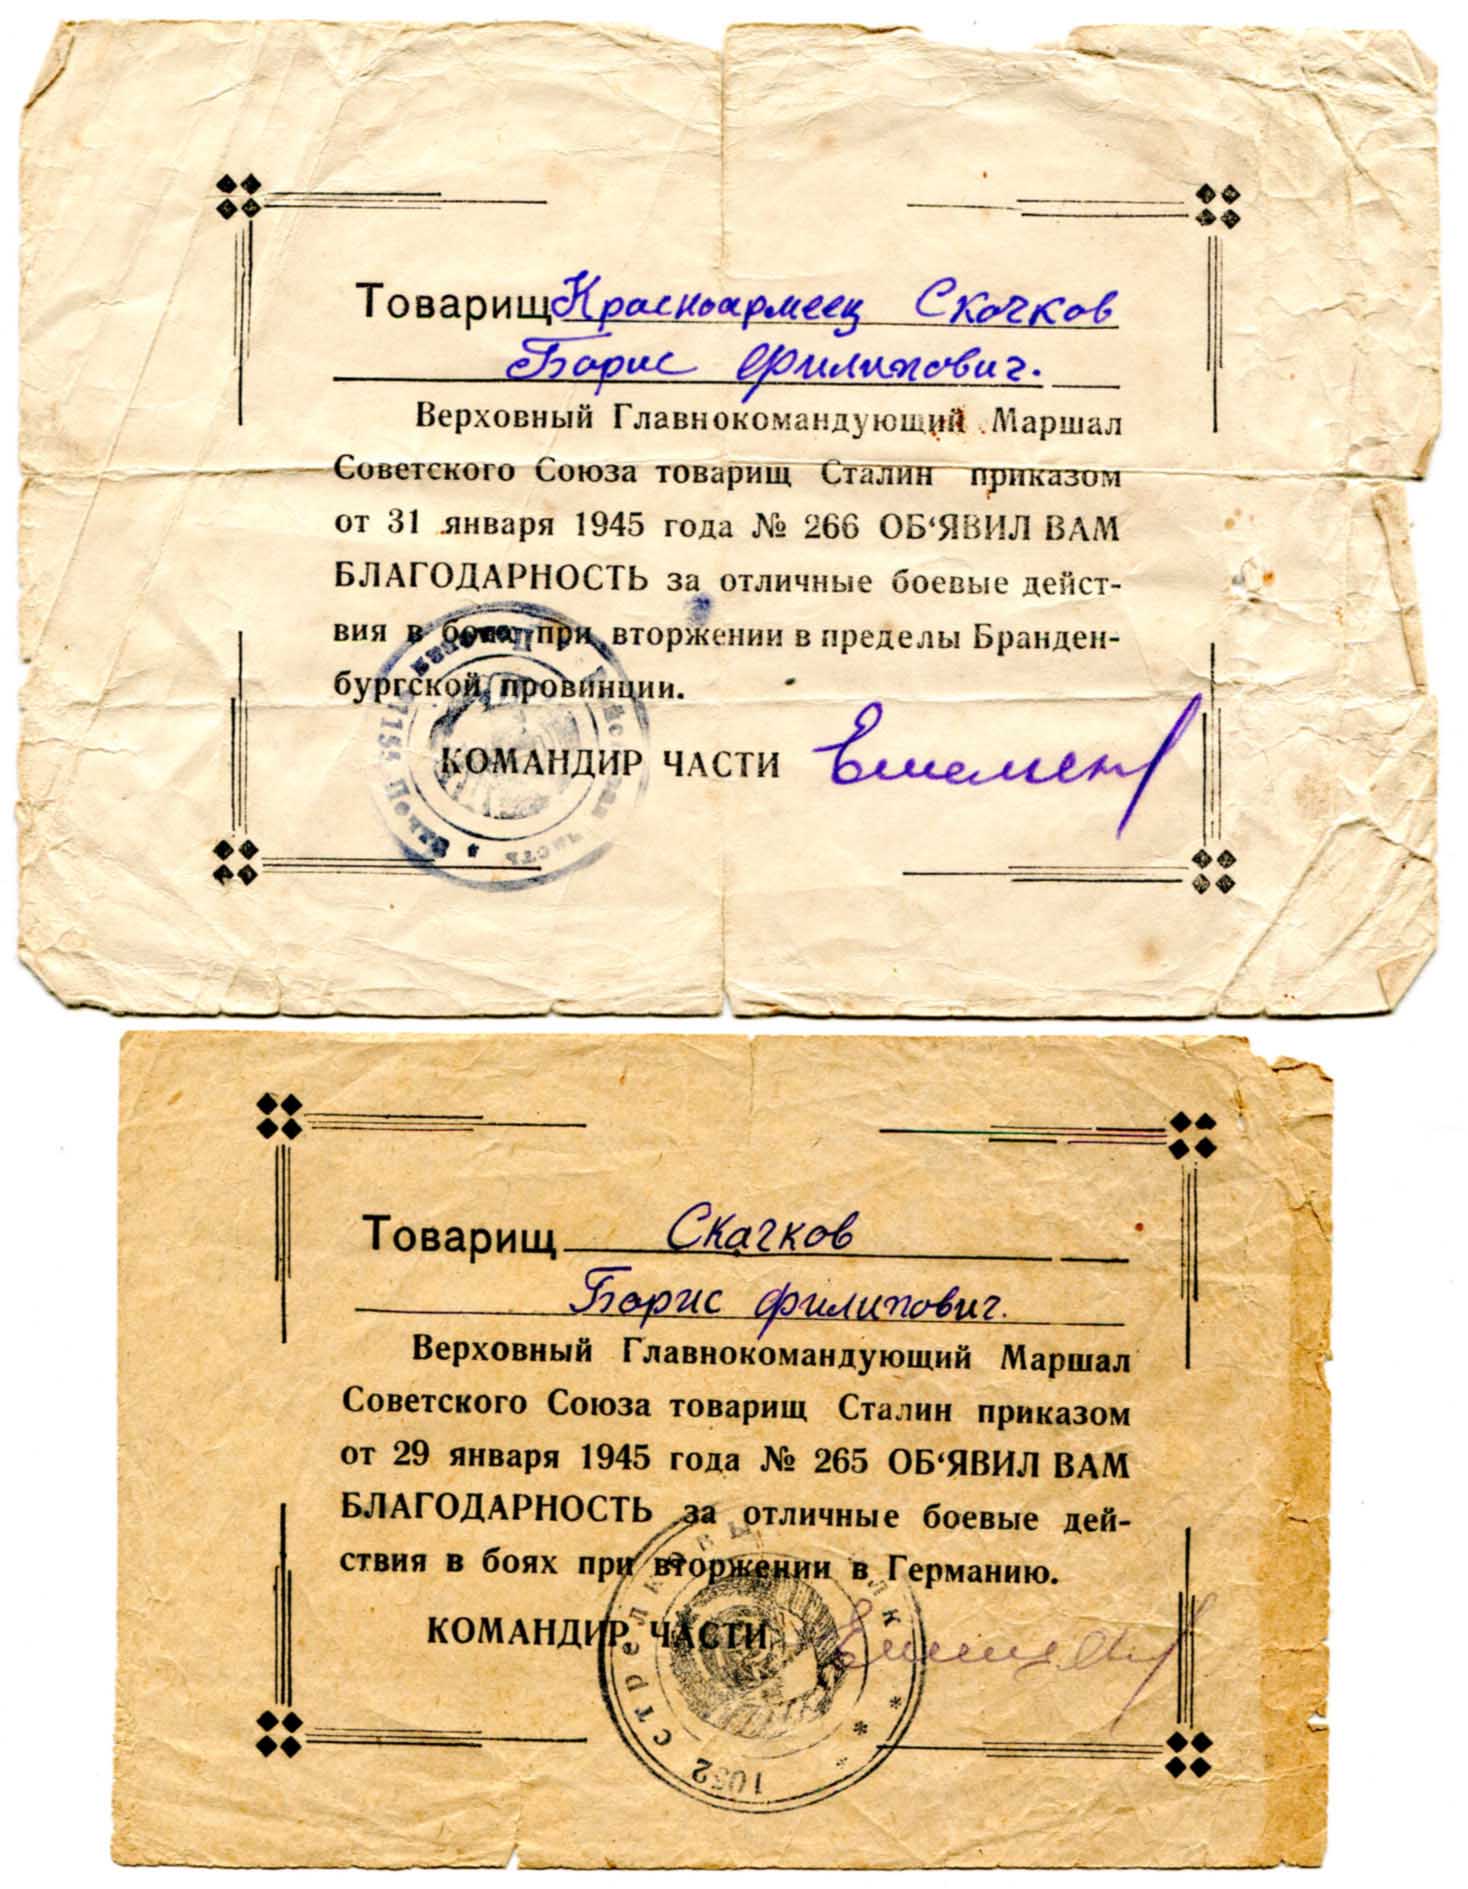 Товарищ Красноармеец Скочков
Борис Филипович.
Верховный Главнокомандующий Маршал
Советского Союза товарищ Сталин приказом
от 31 января 1945 года № 266 ОБ‘ЯВИЛ ВАМ
БЛАГОДАРНОСТЬ за отличные боевые дейст-
вия в боях при вторжении в пределы Бранден-
бургской провинции.
КОМАНДИР ЧАСТИ
часть
Товарищ Скачков
Борис Филипович.
Верховный Главнокомандующий Маршал
Советского Союза товарищ Сталин приказом
от 29 января 1945 года № 265 ОБ‘ЯВИЛ ВАМ
БЛАГОДАРНОСТЬ за отличные боевые дей-
ствия в боях при вторжении в Германию.
КОМАНДИР ЧАСТИ
1052 стрелковый полк